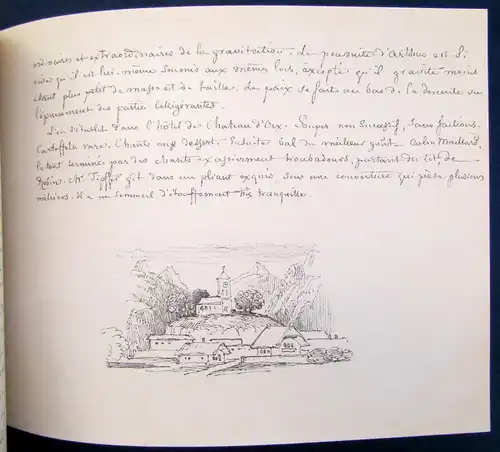 ordinaires et extraordinaires de la gravitation. La poursuite d'Arthur est Si
vive qu'il est lui-même soumis aux mêmes lois, excepté qu'il gravite moins
étant plus petit de masse et de taille. La paix se fait au bas de la descente vu
l'épuisement des parties belligérantes.
L'on s'établit dans l'hôtel de Chateau d'Oex. Souper non Successif, sans factions.
Cartoffeln rare. Chants au dessert. Ensuite bal du meilleur goût Colin Maillard,
le tout terminé par des chants excessivement troubadours, partant du lit de
Robin. Mr Töpffer gît dans un pliant exquis, sous une couverture qui pèse plusieurs
milliers. Il a un sommeil d'étouffement très tranquille.